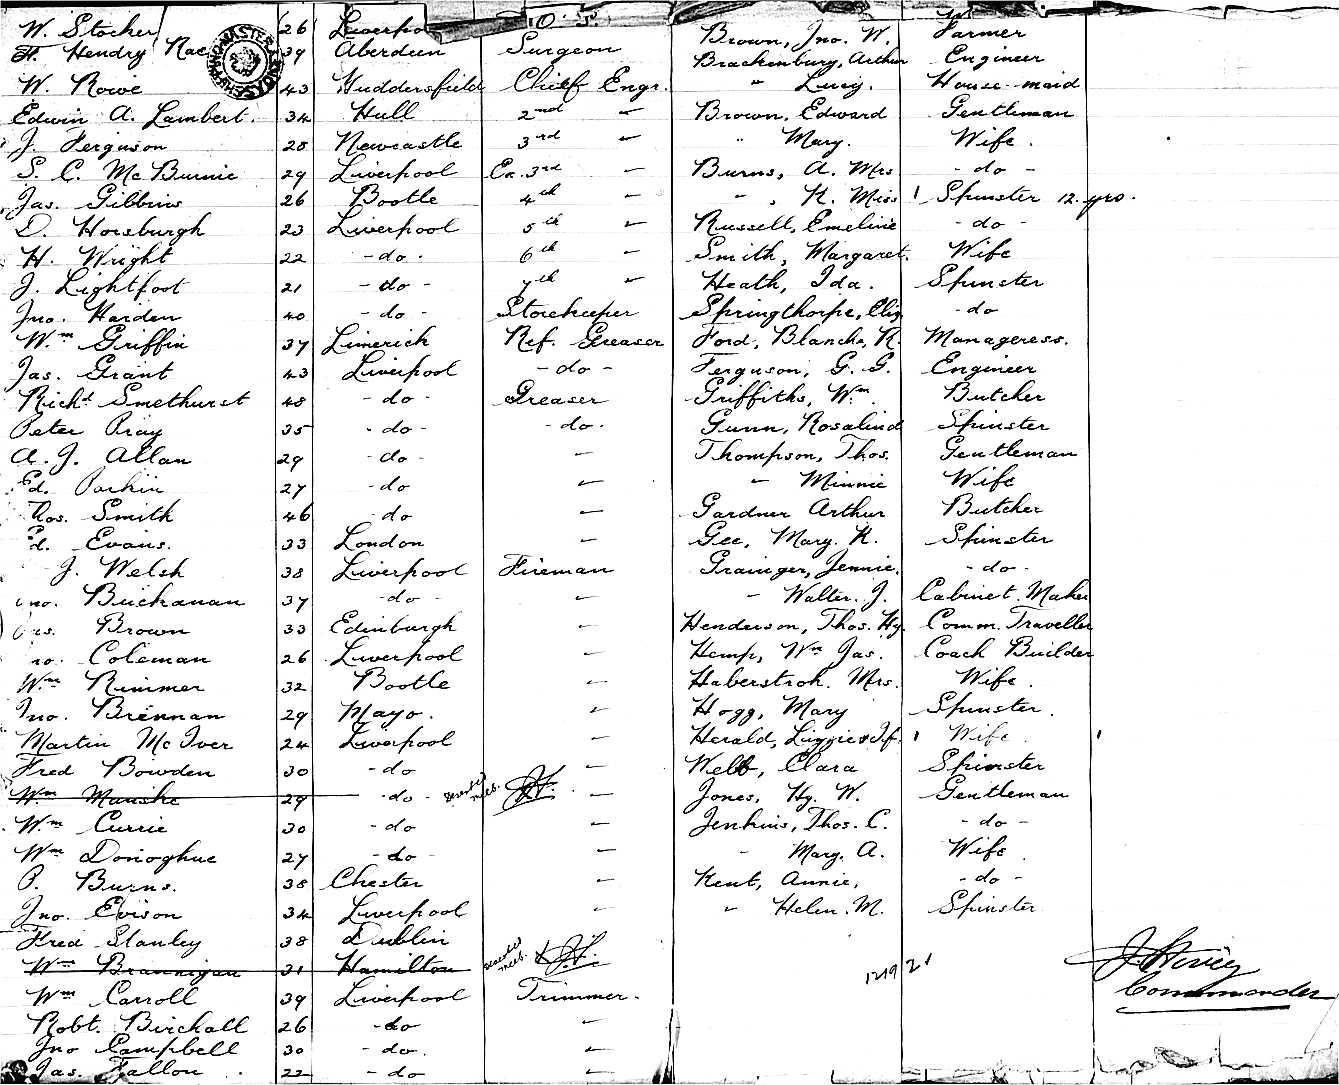 W. Stocker 26 Liverpo O. S. Brown, Jno. W. Farmer
H. Hendry Rae 39 Aberdeen Surgeon Brackenbury, Arthur Engineer
W. Rowe 43 Huddersfield Chief Engr. " Lucy. House-maid
Edwin A. Lambert. 34 Hull 2nd " Brown, Edward Gentleman
J. Ferguson 28 Newcastle 3rd " " Mary. Wife.
S. C. McBurnie 29 Liverpool Ex. 3rd " Burns, A. Mrs - do -
Jas. Gibbins 26 Bootle 4th " " , K. Miss 1 Spinster 12 yrs.
D. Horsburgh 23 Liverpool 5th " Russell, Emeline - do -
H. Wright 22 - do - 6th " Smith, Margaret. Wife
J. Lightfoot 21 - do - 7th " Heath, Ida. Spinster
Jno. Harden 40 - do - Storekeeper Springthorpe, Eliz. - do
Wm Griffin 37 Limerick Ref. Greaser Ford, Blanche, R. Manageress.
Jas. Grant 43 Liverpool - do - Ferguson, G. G. Engineer
Richd Smethurst 48 - do - Greaser Griffiths, Wm. Butcher
Peter Pray 35 - do - - do - Gunn, Rosalind Spinster
A. J. Allan 29 - do - " Thompson, Thos. Gentleman
Ed. Parkin 27 - do " " Minnie Wife
Thos. Smith 46 do " Gardner Arthur Butcher
Ed. Evans. 33 London " Gee, Mary. K. Spinster
J. Welsh 38 Liverpool Fireman Grainger, Jennie. - do -
Jno. Buchanan 37 - do - " " Walter. J. Cabinet Maker
Jas. Brown 33 Edinburgh " Henderson, Thos. Hy. Comm. Traveller
Jno. Coleman 26 Liverpool " Hemp, Wm Jas. Coach Builder
Wm Rimmer 32 Bootle " Haberstroh. Mrs. Wife.
Jno. Brennan 29 Mayo. " Hogg, Mary Spinster.
Martin McIver 24 Liverpool " Herald, Lizzie & If. 1 Wife. 1
Fred Bowden 30 - do " Webb, Clara Spinster
Wm Manske 29 - do - Deserted " Jones, Hy. W. Gentleman
Wm Currie 30 - do " Jenkins, Thos. C. - do -
Wm Donoghue 27 - do - " " Mary. A. Wife
P. Burns. 38 Chester " Kent, Annie, - do -
Jno. Evison 34 Liverpool " " Helen. M. Spinster
Fred Stanley 38 Dublin
Wm Brannigan 31 Hamilton Deserted 1219 2 1
Wm Carroll 39 Liverpool Trimmer. Commander
Robt. Birchall 26 - do "
Jno Campbell 30 - do. "
Jas. Fallon 22 - do "